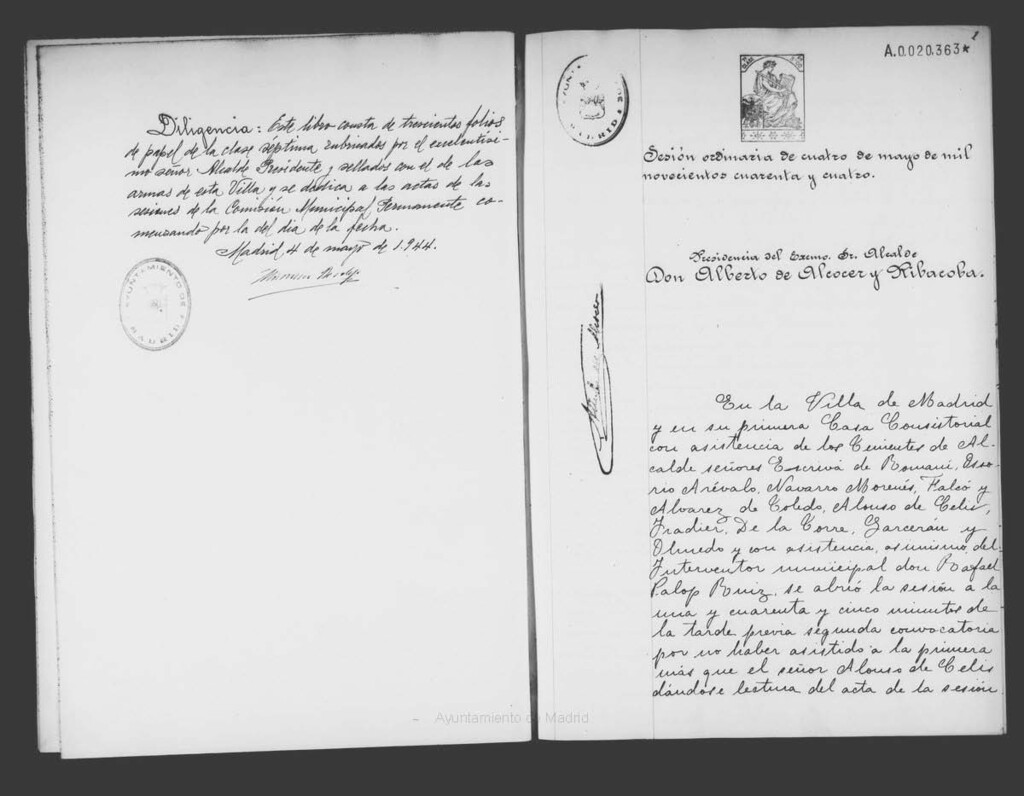 Diligencia: Este libro consta de trescientos folios
de papel de la clase séptima rubricados por el excelentísi-
mo señor Alcalde Presidente y sellados con el de las
armas de esta Villa y se dedica a las actas de las
sesiones de la Comisión Municipal Permanente co-
menzando por la del dia de la fecha.
Madrid 4 de mayo de 1.944.
AYUNTAMIENTO DE
MADRID
A.0.020.363*
MADRID
Sesión ordinaria de cuatro de mayo de mil
novecientos cuarenta y cuatro.
Presidencia del Excmo. Sr. Alcalde
Don Alberto de Alcocer y Ribacoba.
En la Villa de Madrid
y en su primera Casa Consistorial
con asistencia de los Tenientes de Al-
calde señores Escrivá de Romaní, Osso-
rio Arévalo, Navarro Morenés, Falcó y
Alvarez de Toledo, Alonso de Celis,
Fradier, De la Torre, Garcerán y
Olmedo y con asistencia, asimismo, del
Interventor municipal don Rafael
Palop Ruiz, se abrió la sesión a la
una y cuarenta y cinco minutos de
la tarde previa segunda convocatoria
por no haber asistido a la primera
más que el señor Alonso de Celis
dándose lectura del acta de la sesión
Ayuntamiento de Madrid